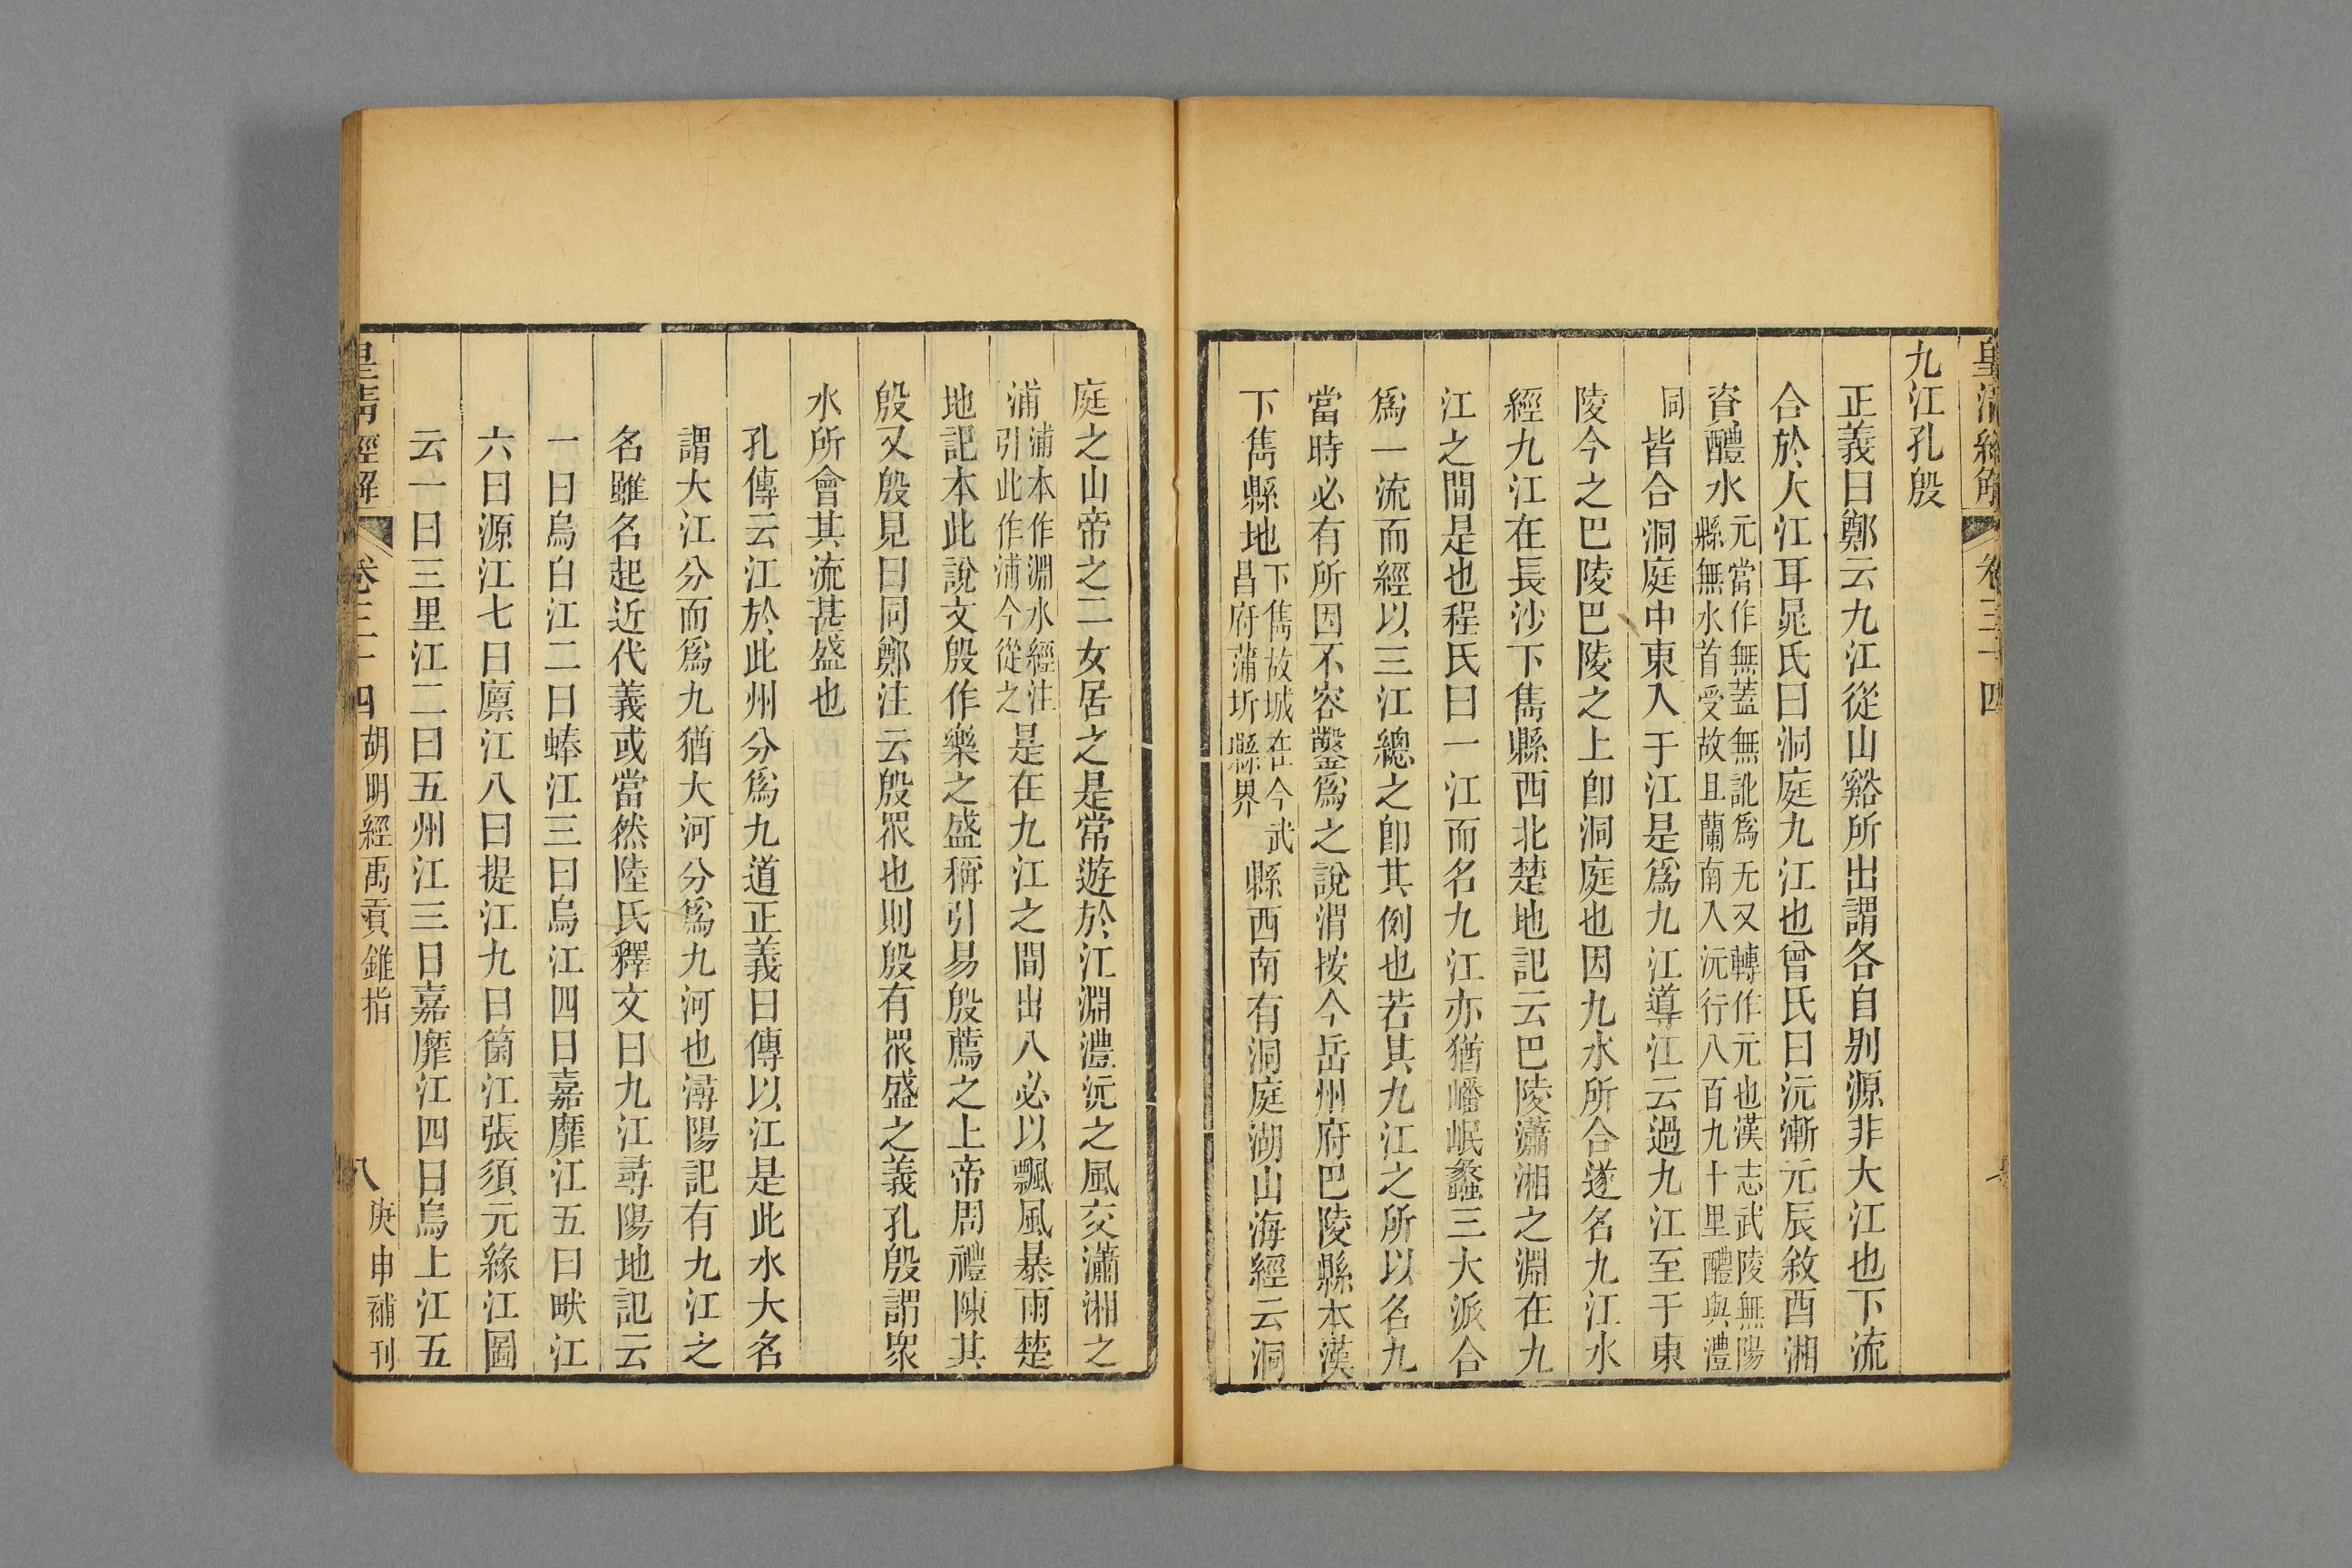 皇清經解 卷三十四
九江孔殷
正義曰鄭云九江從山谿所出謂各自别源非大江也下流
合於大江耳晁氏曰洞庭九江也曾氏曰沅漸元辰敘酉湘
資醴水元當作無蓋無訛爲无又轉作元也漢志武陵無陽縣無水首受故且蘭南入沅行八百九十里醴與澧
同皆合洞庭中東入于江是爲九江導江云過九江至于東
陵今之巴陵巴陵之上卽洞庭也因九水所合遂名九江水
經九江在長沙下雋縣西北楚地記云巴陵瀟湘之淵在九
江之間是也程氏曰一江而名九江亦猶嶓岷蠡三大派合
爲一流而經以三江總之卽其例也若其九江之所以名九
當時必有所因不容鑿爲之說渭按今岳州府巴陵縣本漢
下雋縣地下雋故城在今武昌府蒲圻縣界縣西南有洞庭湖山海經云洞
庭之山帝之二女居之是常遊於江淵澧沅之風交瀟湘之
浦浦本作淵水經注引此作浦今從之是在九江之間出入必以飄風暴雨楚
地記本此說文殷作樂之盛稱引易殷薦之上帝周禮陳其
殷又殷見曰同鄭注云殷眾也則殷有眾盛之義孔殷謂眾
水所會其流甚盛也
孔傳云江於此州分爲九道正義曰傳以江是此水大名
謂大江分而爲九猶大河分爲九河也潯陽記有九江之
名雖名起近代義或當然陸氏釋文曰九江尋陽地記云
一曰烏白江二曰蜯江三曰烏江四曰嘉靡江五曰畎江
六曰源江七曰廩江八曰提江九曰箘江張須元緣江圖
云一曰三里江二曰五州江三曰嘉靡江四曰烏上江五
皇清經解 卷三十四 胡明經禹貢錐指 八 庚申補刊